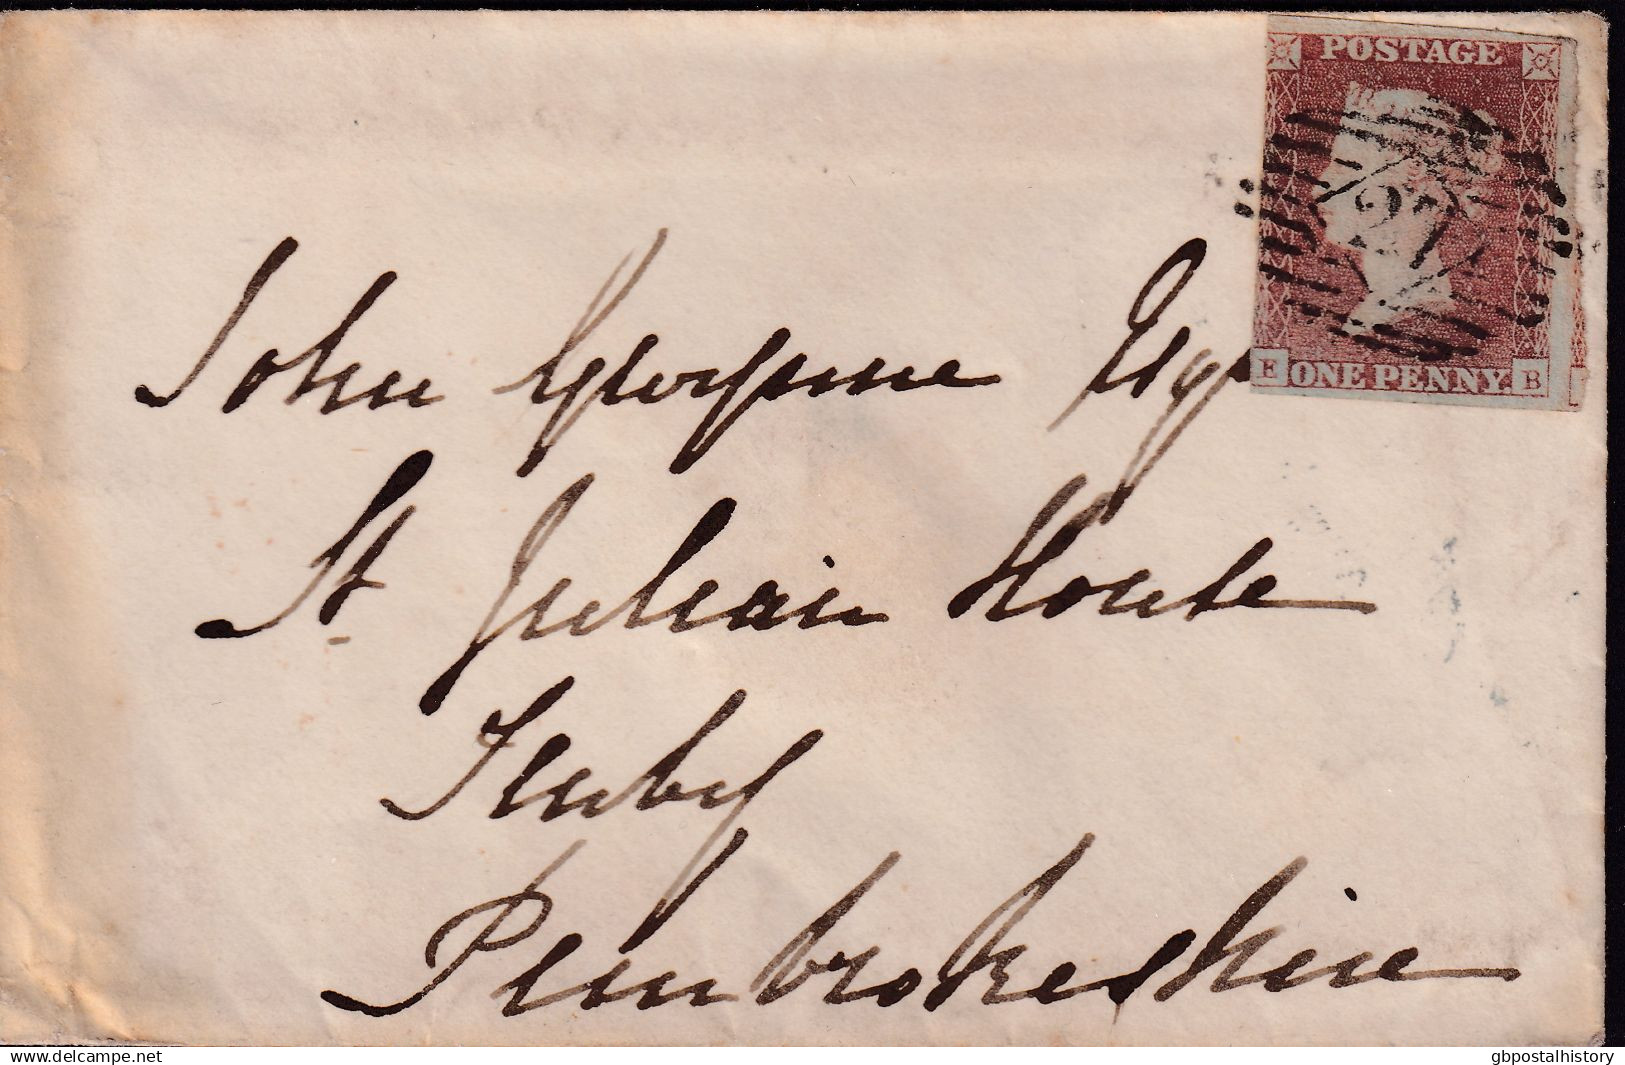 POSTAGE
27
E ONE PENNY. B
John Gwynne Esqr
St. Julian House
Tenby
Pembrokeshire
delcampe.net
gbpostalhistory